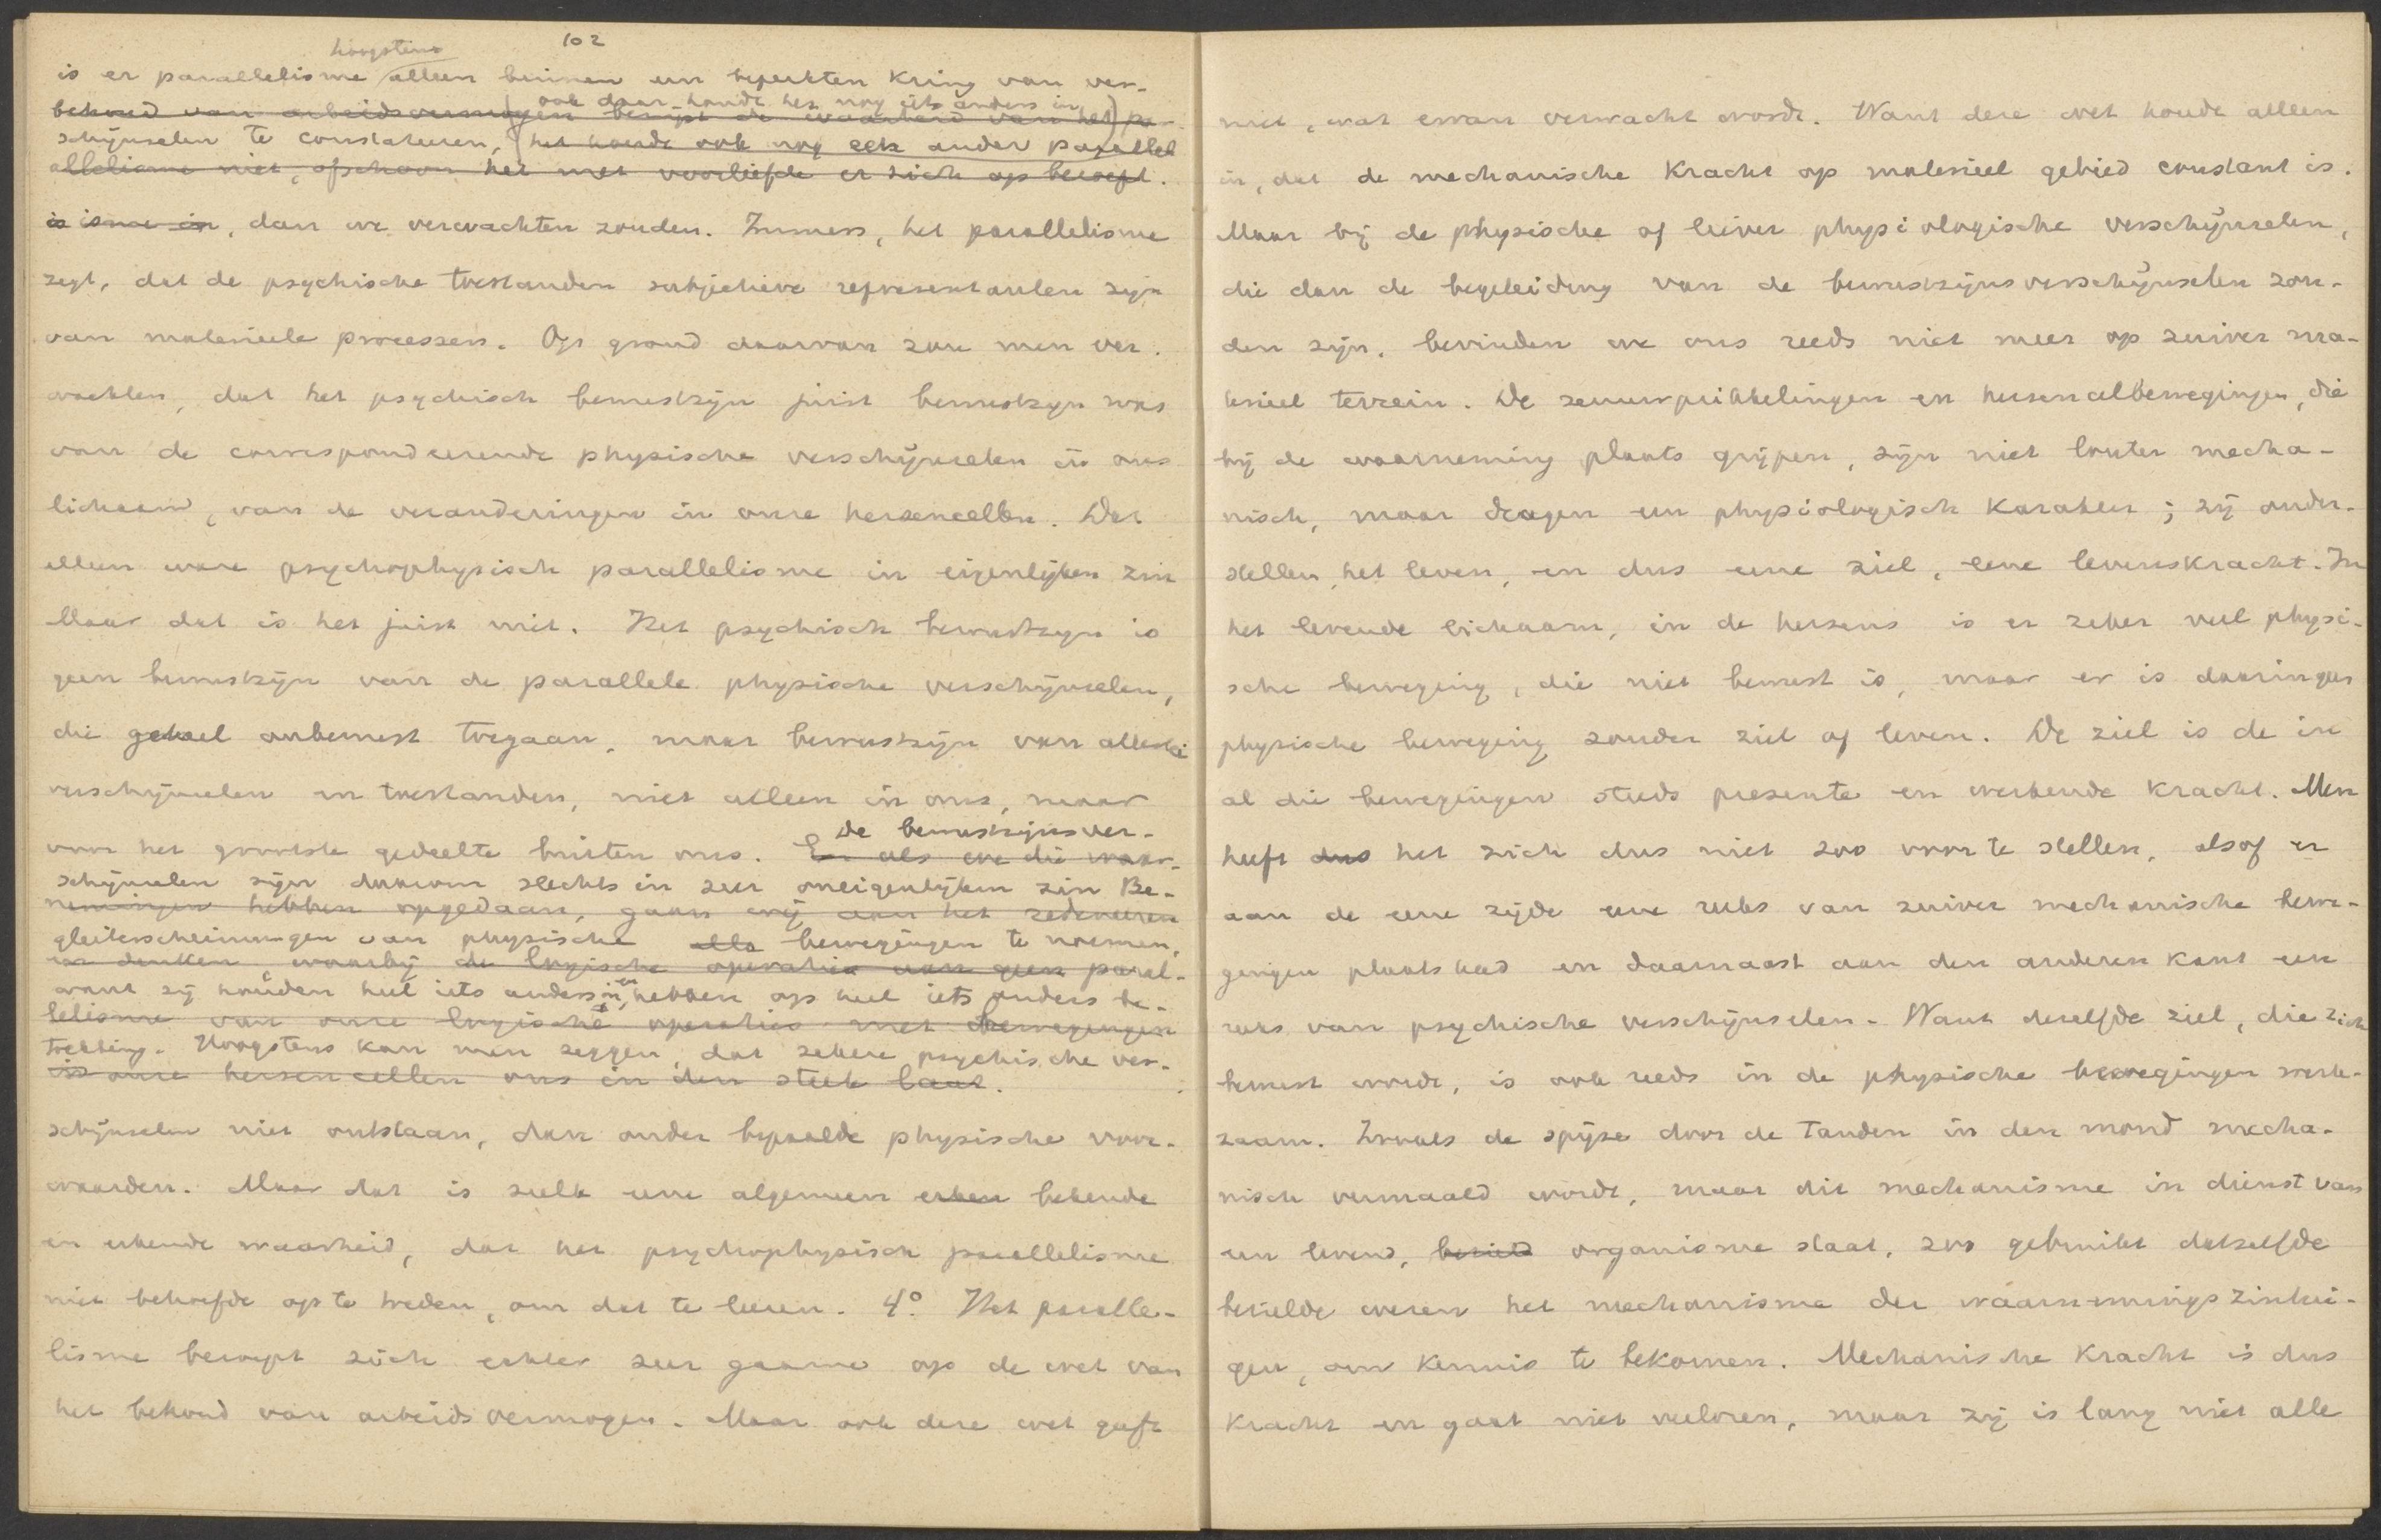 102
hoogstens
is er parallelisme alleen binnen een beperkten kring van ver-
ook daar houdt het nog iets anders in,
behoud van arbeidsvermogen bewijst de waarheid van het pa-
schijnselen te constateeren, het houdt ook nog een ander parallel
allelisme niet, ofschoon het met voorliefde er zich op beroept.
is isme in, dan we verwachten zouden. Immers, het parallelisme
zegt, dat de psychische toestanden subjectieve representanten zijn
van materieele processen. Op grond daarvan zou men ver-
wachten, dat het psychisch bewustzijn juist bewustzijn was
van de correspondeerende physische verschijnselen in ons
lichaam, van de veranderingen in onze hersencellen. Dat
alleen ware psychophysisch parallelisme in eigenlijken zin
Maar dat is het juist niet. Het psychisch bewustzijn is
geen bewustzijn van de parallele physische verschijnselen,
die geheel onbewust toegaan, maar bewustzijn van allerlei
verschijnselen en toestanden, niet alleen in ons, maar
De bewustzijnsver-
voor het grootste gedeelte buiten ons. En als we die waar-
schijnselen zijn daarom slechts in zeer oneigenlijken zin Be-
nemingen hebben opgedaan, gaan wij aan het redeneeren
gleiterscheinungen van physische bewegingen te noemen,
en denken, waarbij de logische operaties van geen paral-
want zij houden heel iets anders in, en hebben op heel iets anders be-
lelisme van onze logische operaties met bewegingen
trekking. Hoogstens kan men zeggen, dat zekere psychische ver-
in onze hersencellen ons in den steek laat.
schijnselen niet ontstaan, dan onder bepaalde physische voor-
waarden. Maar dat is zulk eene algemeen erken bekende
en erkende waarheid, dat het psychophysisch parallelisme
niet behoefde op te treden, om dat te leeren. 4º. Het paralle-
lisme beroept zich echter zeer gaarne op de wet van
het behoud van arbeidsvermogen. Maar ook deze wet geeft
niet, wat ervan verwacht wordt. Want deze wet houdt alleen
in, dat de mechanische kracht op materieel gebied constant is.
Maar bij de physische of liever physiologische verschijnselen,
die dan de begeleiding van de bewustzijnsverschijnselen zou-
den zijn, bevinden we ons reeds niet meer op zuiver ma-
terieel terrein. De zenuwprikkelingen en hersencelbewegingen, die
bij de waarneming plaats grijpen, zijn niet louter mecha-
nisch, maar dragen een physiologisch karakter; zij onder-
stellen het leven, en dus eene ziel, eene levenskracht. In
het levende lichaam, in de hersens is er zeker veel physi-
sche beweging, die niet bewust is, maar er is daarin geen
physische beweging zonder ziel of leven. De ziel is de in
al die bewegingen steeds presente en werkende kracht. Men
heeft dus het zich dus niet zoo voor te stellen, alsof er
aan de eene zijde eene reeks van zuiver mechanische bewe-
gingen plaats had en daarnaast aan den anderen kant een
reeks van psychische verschijnselen. Want dezelfde ziel, die zich
bewust wordt, is ook reeds in de physische bewegingen werk-
zaam. Zooals de spijze door de tanden in den mond mecha-
nisch vermaald wordt, maar dit mechanisme in dienst van
een levend, bezield organisme staat, zoo gebruikt datzelfde
bezielde wezen het mechanisme der waarnemingszintui-
gen, om kennis te bekomen. Mechanische kracht is dus
kracht en gaat niet verloren, maar zij is lang niet alle